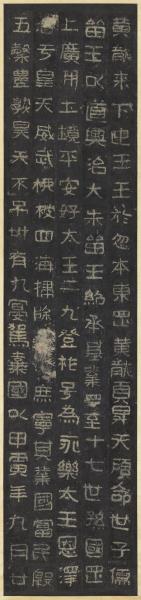 黃龍來下迎王王於忽本東罡黃龍負昇天顧命世子儒
留王以道興治大朱留王紹承基業遝至十七世孫國罡
上廣開土境平安好太王二九登祚号為永樂太王恩澤
洽于皇天威武桄被四海掃除庶寧其業國富民殷
五穀豊熟昊天不弔卅有九宴駕棄國以甲寅年九月廿